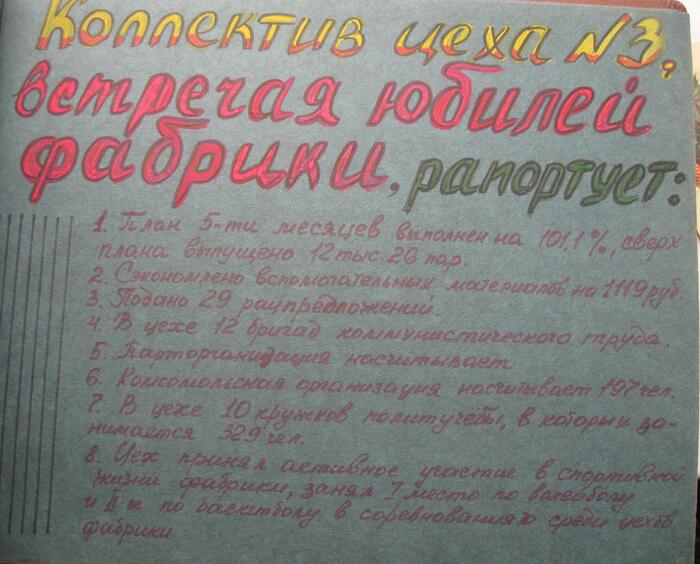 Коллектив цеха N3,
встречая юбилей
фабрики, рапортует:
1. План 5-ти месяцев выполнен на 101,1%, сверх
плана выпущено 12 тыс. 26 пар.
2. Сэкономлено вспомогательных материалов на 1119 руб.
3. Подано 29 рацпредложений.
4. В цехе 12 бригад коммунистического труда.
5. Парторганизация насчитывает
6. Комсомольская организация насчитывает 197 чел.
7. В цехе 10 кружков политучебы, в которых за-
нимается 329 чел.
8. Цех принял активное участие в спортивной
жизни фабрики, занял I место по волейболу
и II е по баскетболу в соревнованиях среди цехов
фабрики